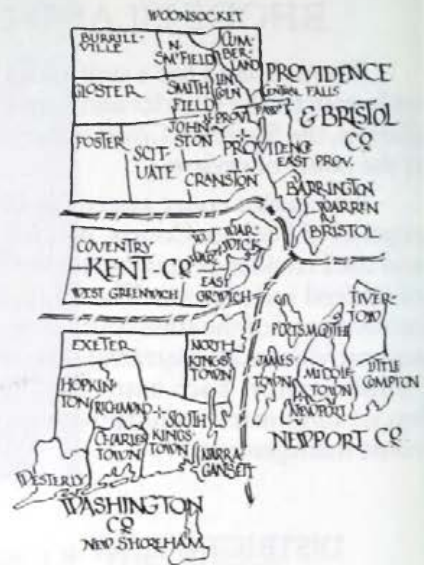 WOONSOCKET
BURRILL-
VILLE
N.
SM'FIELD
CUM-
BER-
LAND
GLOSTER
SMITH
FIELD
LIN
COLN
PROVIDENCE
CENTRAL FALLS
& BRISTOL
CO
FOSTER
SCIT-
UATE
JOHN-
STON
N. PROV.
PAWT
PROVIDENCE
EAST PROV.
CRANSTON
BARRINGTON
WARREN
BRISTOL
COVENTRY
KENT-CO
WEST GREENWICH
WAR-
WICK
EAST
GR'WICH
EXETER
NORTH
KINGS-
TOWN
HOPKIN-
TON
RICHMOND
SOUTH
KINGS-
TOWN
CHARLES
TOWN
WESTERLY
NARRA-
GANSETT
WASHINGTON
CO
NEW SHOREHAM
JAMES-
TOWN
PORTSMOUTH
TIVER-
TOWN
MIDDLE
TOWN
NEWPORT
LITTLE
COMPTON
NEWPORT CO
DISTRICT